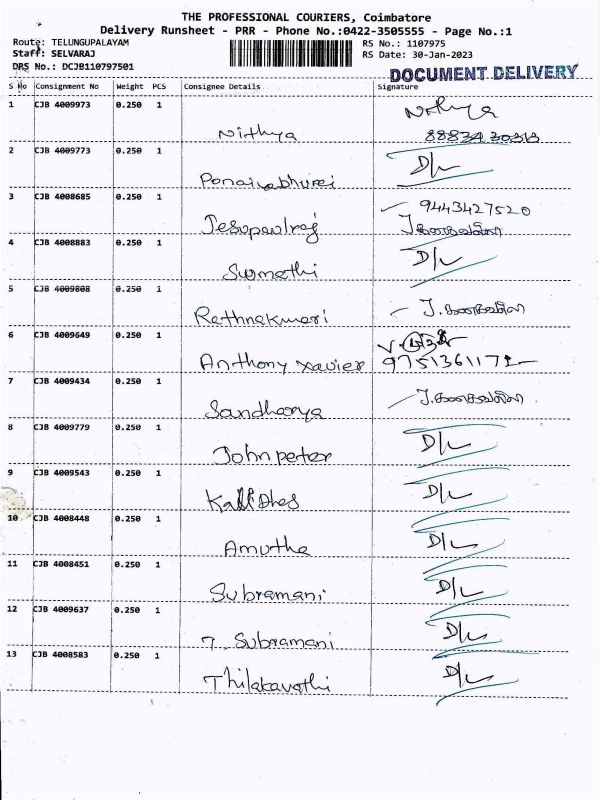 THE PROFESSIONAL COURIERS, Coimbatore
Delivery Runsheet - PRR - Phone No.:0422-3505555 - Page No.:1
Route: TELUNGUPALAYAM
RS No.: 1107975
Staff: SELVARAJ
RS Date: 30-Jan-2023
DRS No.: DCJB110797501
DOCUMENT DELIVERY
S No Consignment No Weight PCS Consignee Details Signature
1 CJB 4009973 0.250 1 Nithya
Nithya
2 CJB 4009773 0.250 1
D/L
3 CJB 4008685 0.250 1 9443427520
Jesupaulraj J.கலைவல்லி
4 CJB 4008883 0.250 1
Sumathi D/L
5 CJB 4009808 0.250 1
Rathnakumari
6 CJB 4009649 0.250 1
Anthony xavier 9751361171
7 CJB 4009434 0.250 1
Sandharya
8 CJB 4009779 0.250 1
John peter D/L
9 CJB 4009543 0.250 1
D/L
10 CJB 4008448 0.250 1
Amutha D/L
11 CJB 4008451 0.250 1
Subramani D/L
12 CJB 4009637 0.250 1
T. Subramani D/L
13 CJB 4008583 0.250 1
Thilakavathi D/L